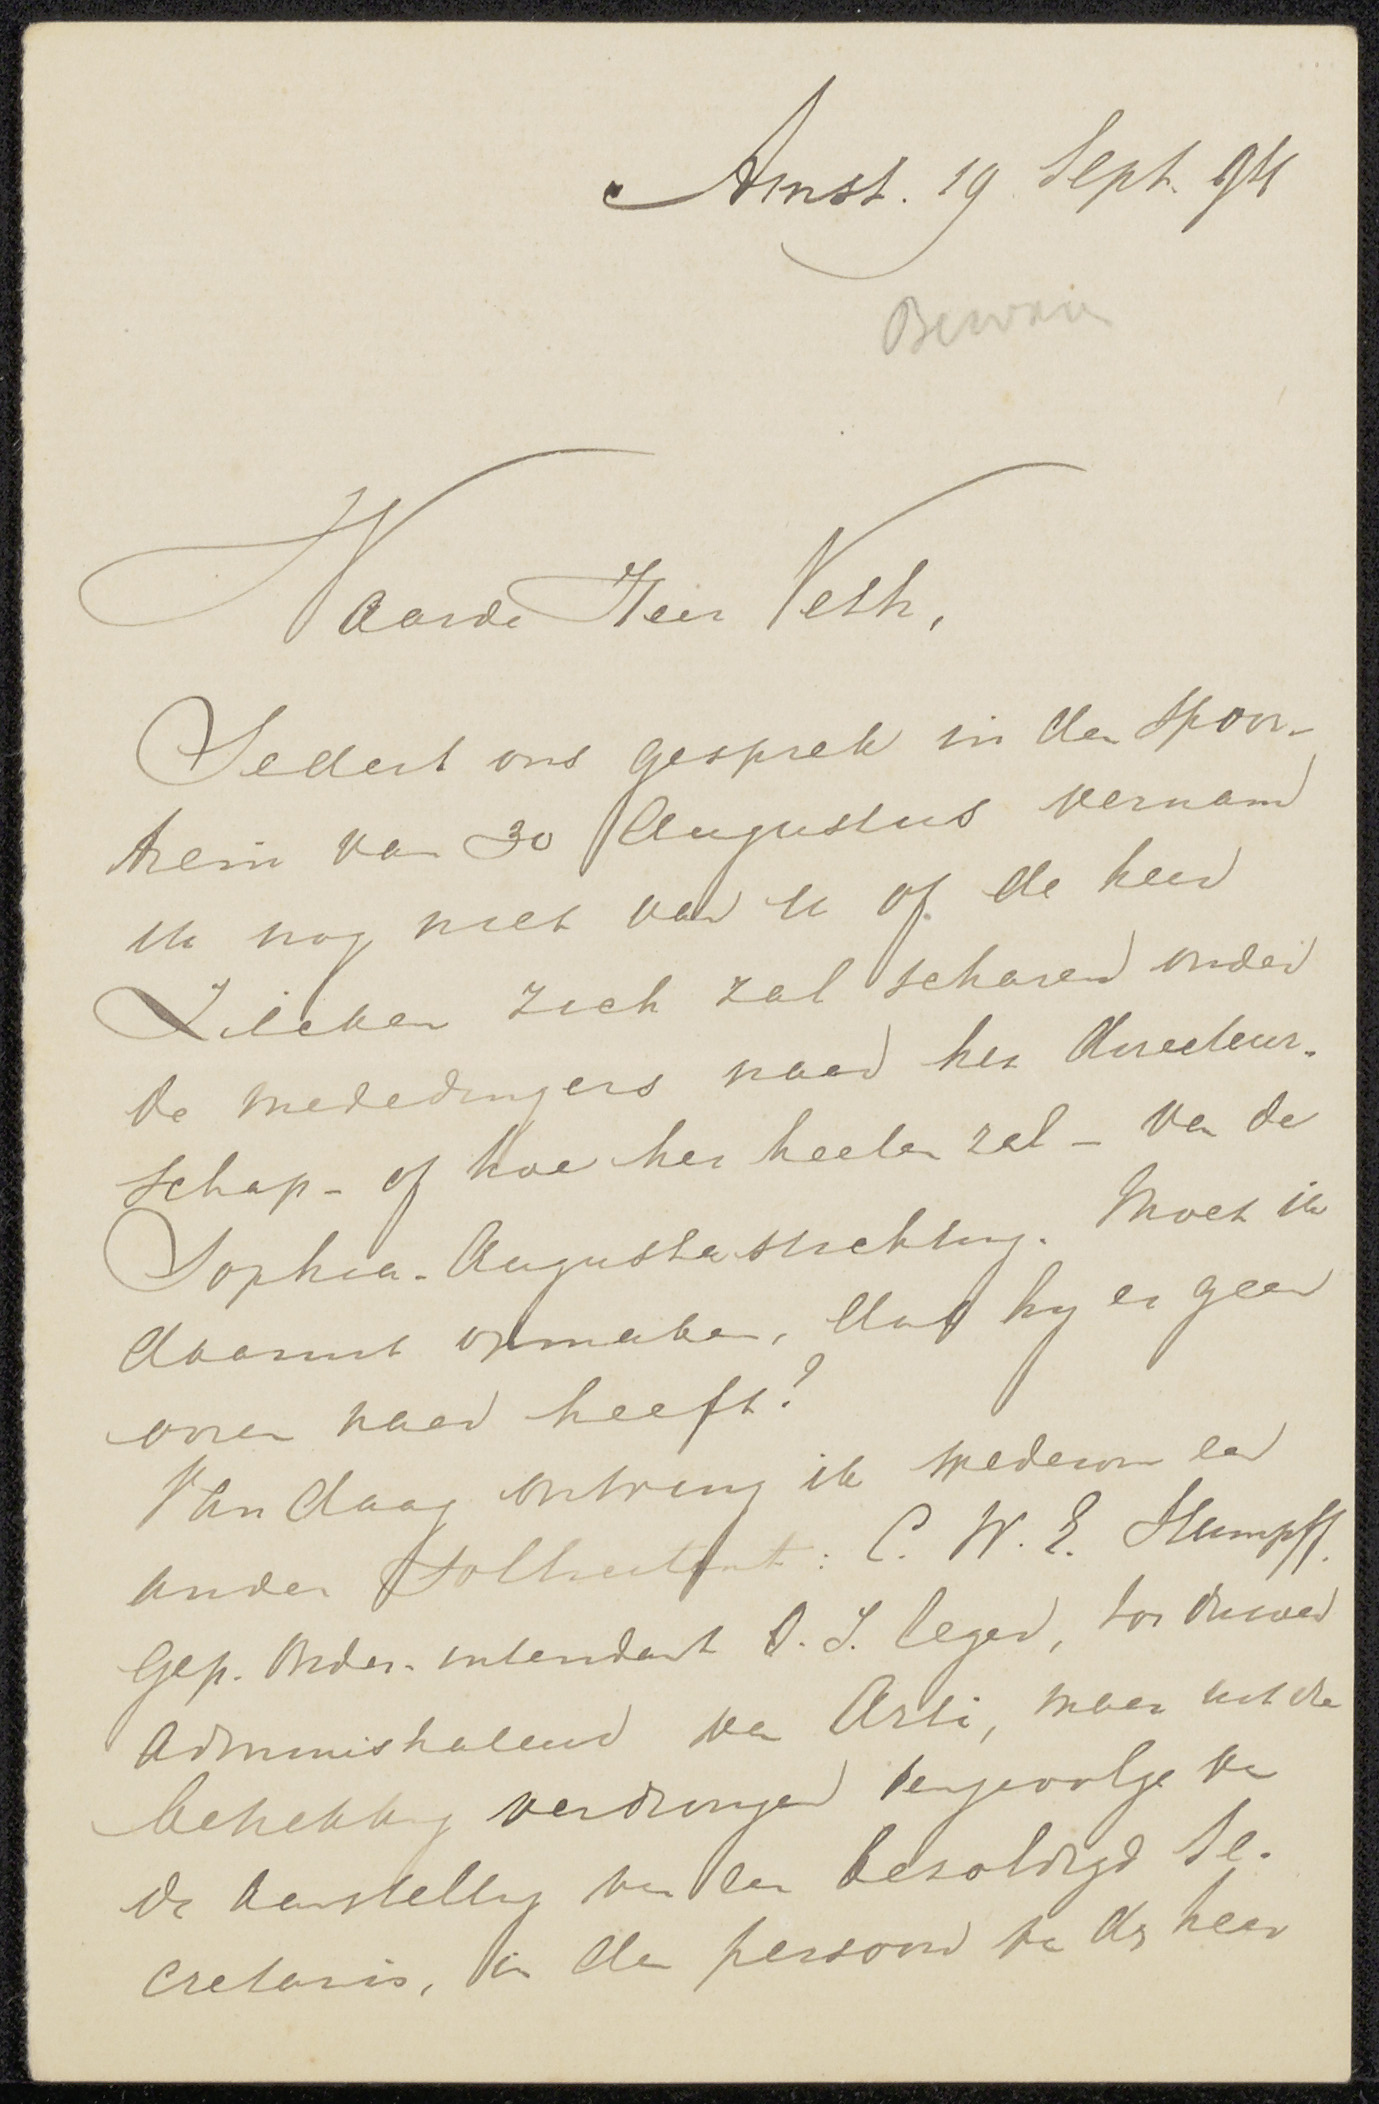 Amst. 19 Sept. 94
Waarde Heer Veth,
Sedert ons gesprek in den spoor-
trein van 30 Augustus vernam
ik nog niet van U of de heer
Zilcken zich zal scharen onder
de mededingers naar het directeur-
schap - of hoe het heeten zal - van de
Sophia-Augustastichting. Moet ik
daaruit opmaken, dat hy er geen
ooren naar heeft?
Van daag ontving ik wederom een
ander sollicitant: C. W. E. Stumpff.
Gep. Onder-intendant O. I. leger, tot dusver
Administrateur van Arti, maar uit die
betrekking verdrongen tengevolge van
de aanstelling van een bezoldigd Se-
cretaris, in den persoon van den heer